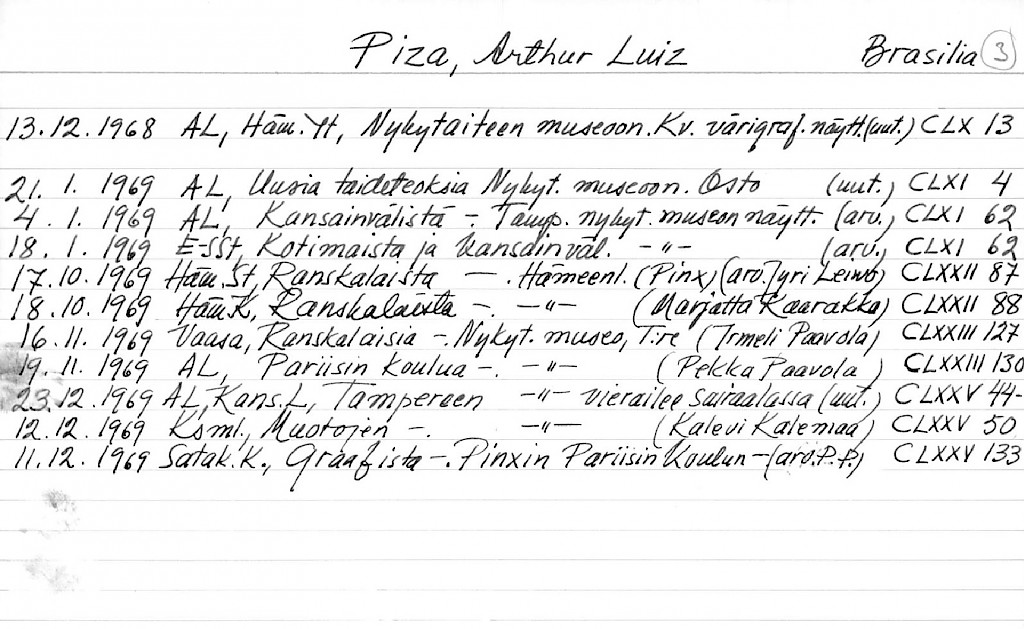 Piza, Arthur Luiz Brasilia 3
13.12.1968 AL, Häm.Yt, Nykytaiteen museoon. Kv. värigraf. näytt. (uut.) CLX 13
21. 1. 1969 AL, Uusia taideteoksia Nykyt. museoon. Osto (uut.) CLXI 4
4. 1. 1969 AL, Kansainvälistä -. Tamp. nykyt. museon näytt. (arv.) CLXI 62
18. 1. 1969 E-SSt, Kotimaista ja kansainväl. -"- (arv.) CLXI 62
17.10.1969 Häm.St, Ranskalaista -. Hämeenl. (Pinx) (arv. Jyri Leiwo) CLXXII 87
18.10.1969 Häm.K, Ranskalaista -. -"- (Marjatta Kaarakka) CLXXII 88
16.11.1969 Vaasa, Ranskalaisia -. Nykyt. museo, T:re (Irmeli Paavola) CLXXIII 127
19.11.1969 AL, Pariisin koulua -. -"- (Pekka Paavola) CLXXIII 130
23.12.1969 AL, Kans.L, Tampereen -"- vierailee sairaalassa (uut.) CLXXV 44-
12.12.1969 Ksml., Muotojen -. -"- (Kalevi Kalemaa) CLXXV 50
11.12.1969 Satak.K., Graafista -. Pinxin Pariisin Koulun - (arv. P.P.) CLXXV 133